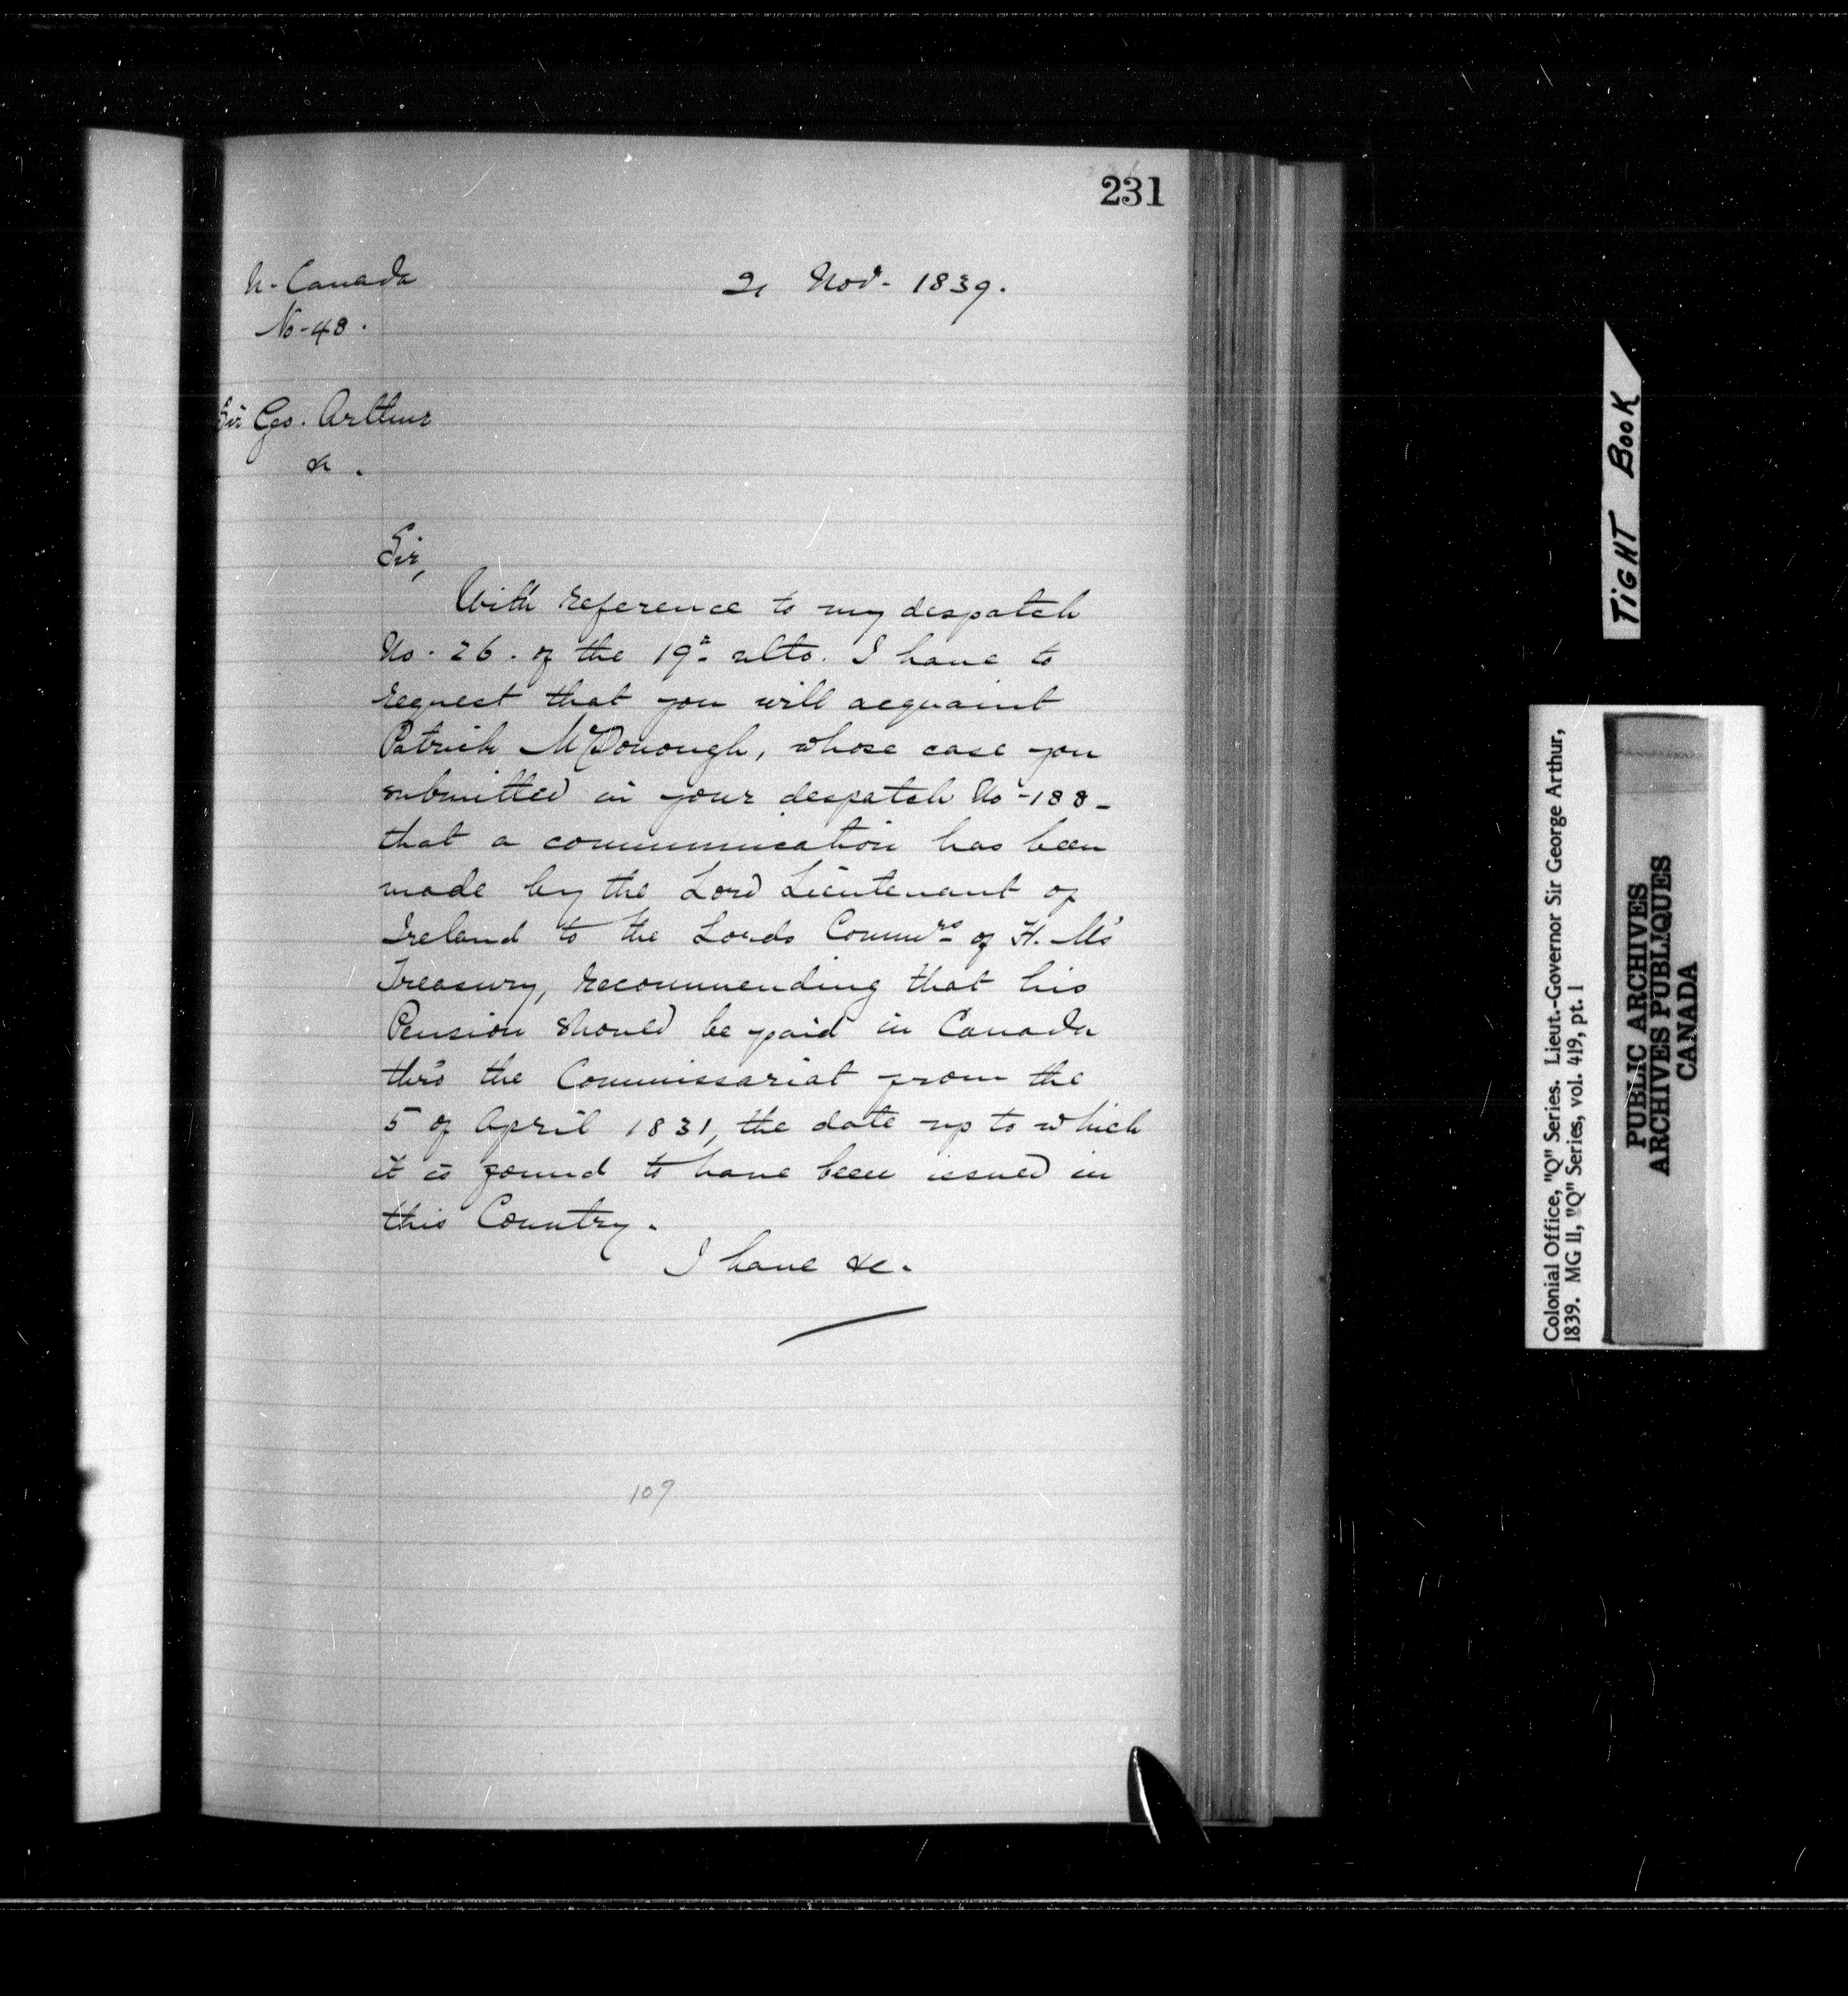 231
U. Canada
21 Novr. 1839.
No. 48.
Sir Geo. Arthur
&c.
Sir,
With reference to my despatch
No. 26. of the 19th ulto. I have to
request that you will acquaint
Patrick McDonough, whose case you
submitted in your despatch No. 188 -
that a communication has been
made by the Lord Lieutenant of
Ireland to the Lords Commrs of H. M's
Treasury, recommending that his
Pension should be paid in Canada
thro the Commissariat from the
5 of April 1831, the date up to which
it is found to have been issued in
this Country.
I have &c.
109
TiGHT BooK
Colonial Office, "Q" Series. Lieut.-Governor Sir George Arthur,
1839. MG 11, "Q" Series, vol. 419, pt. 1
PUBLIC ARCHIVES
ARCHIVES PUBLIQUES
CANADA